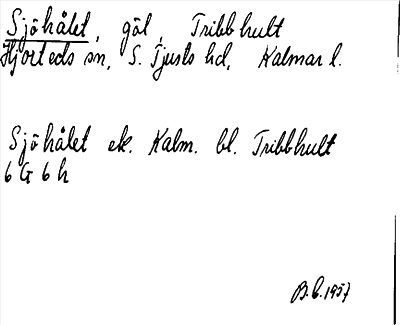 Sjöhålet, göl, Tribbhult
Hjorteds sn, S. Tjusts hd, Kalmar l.
Sjöhålet ek. Kalm. bl. Tribbhult
6 G 6 h
B.C. 1957